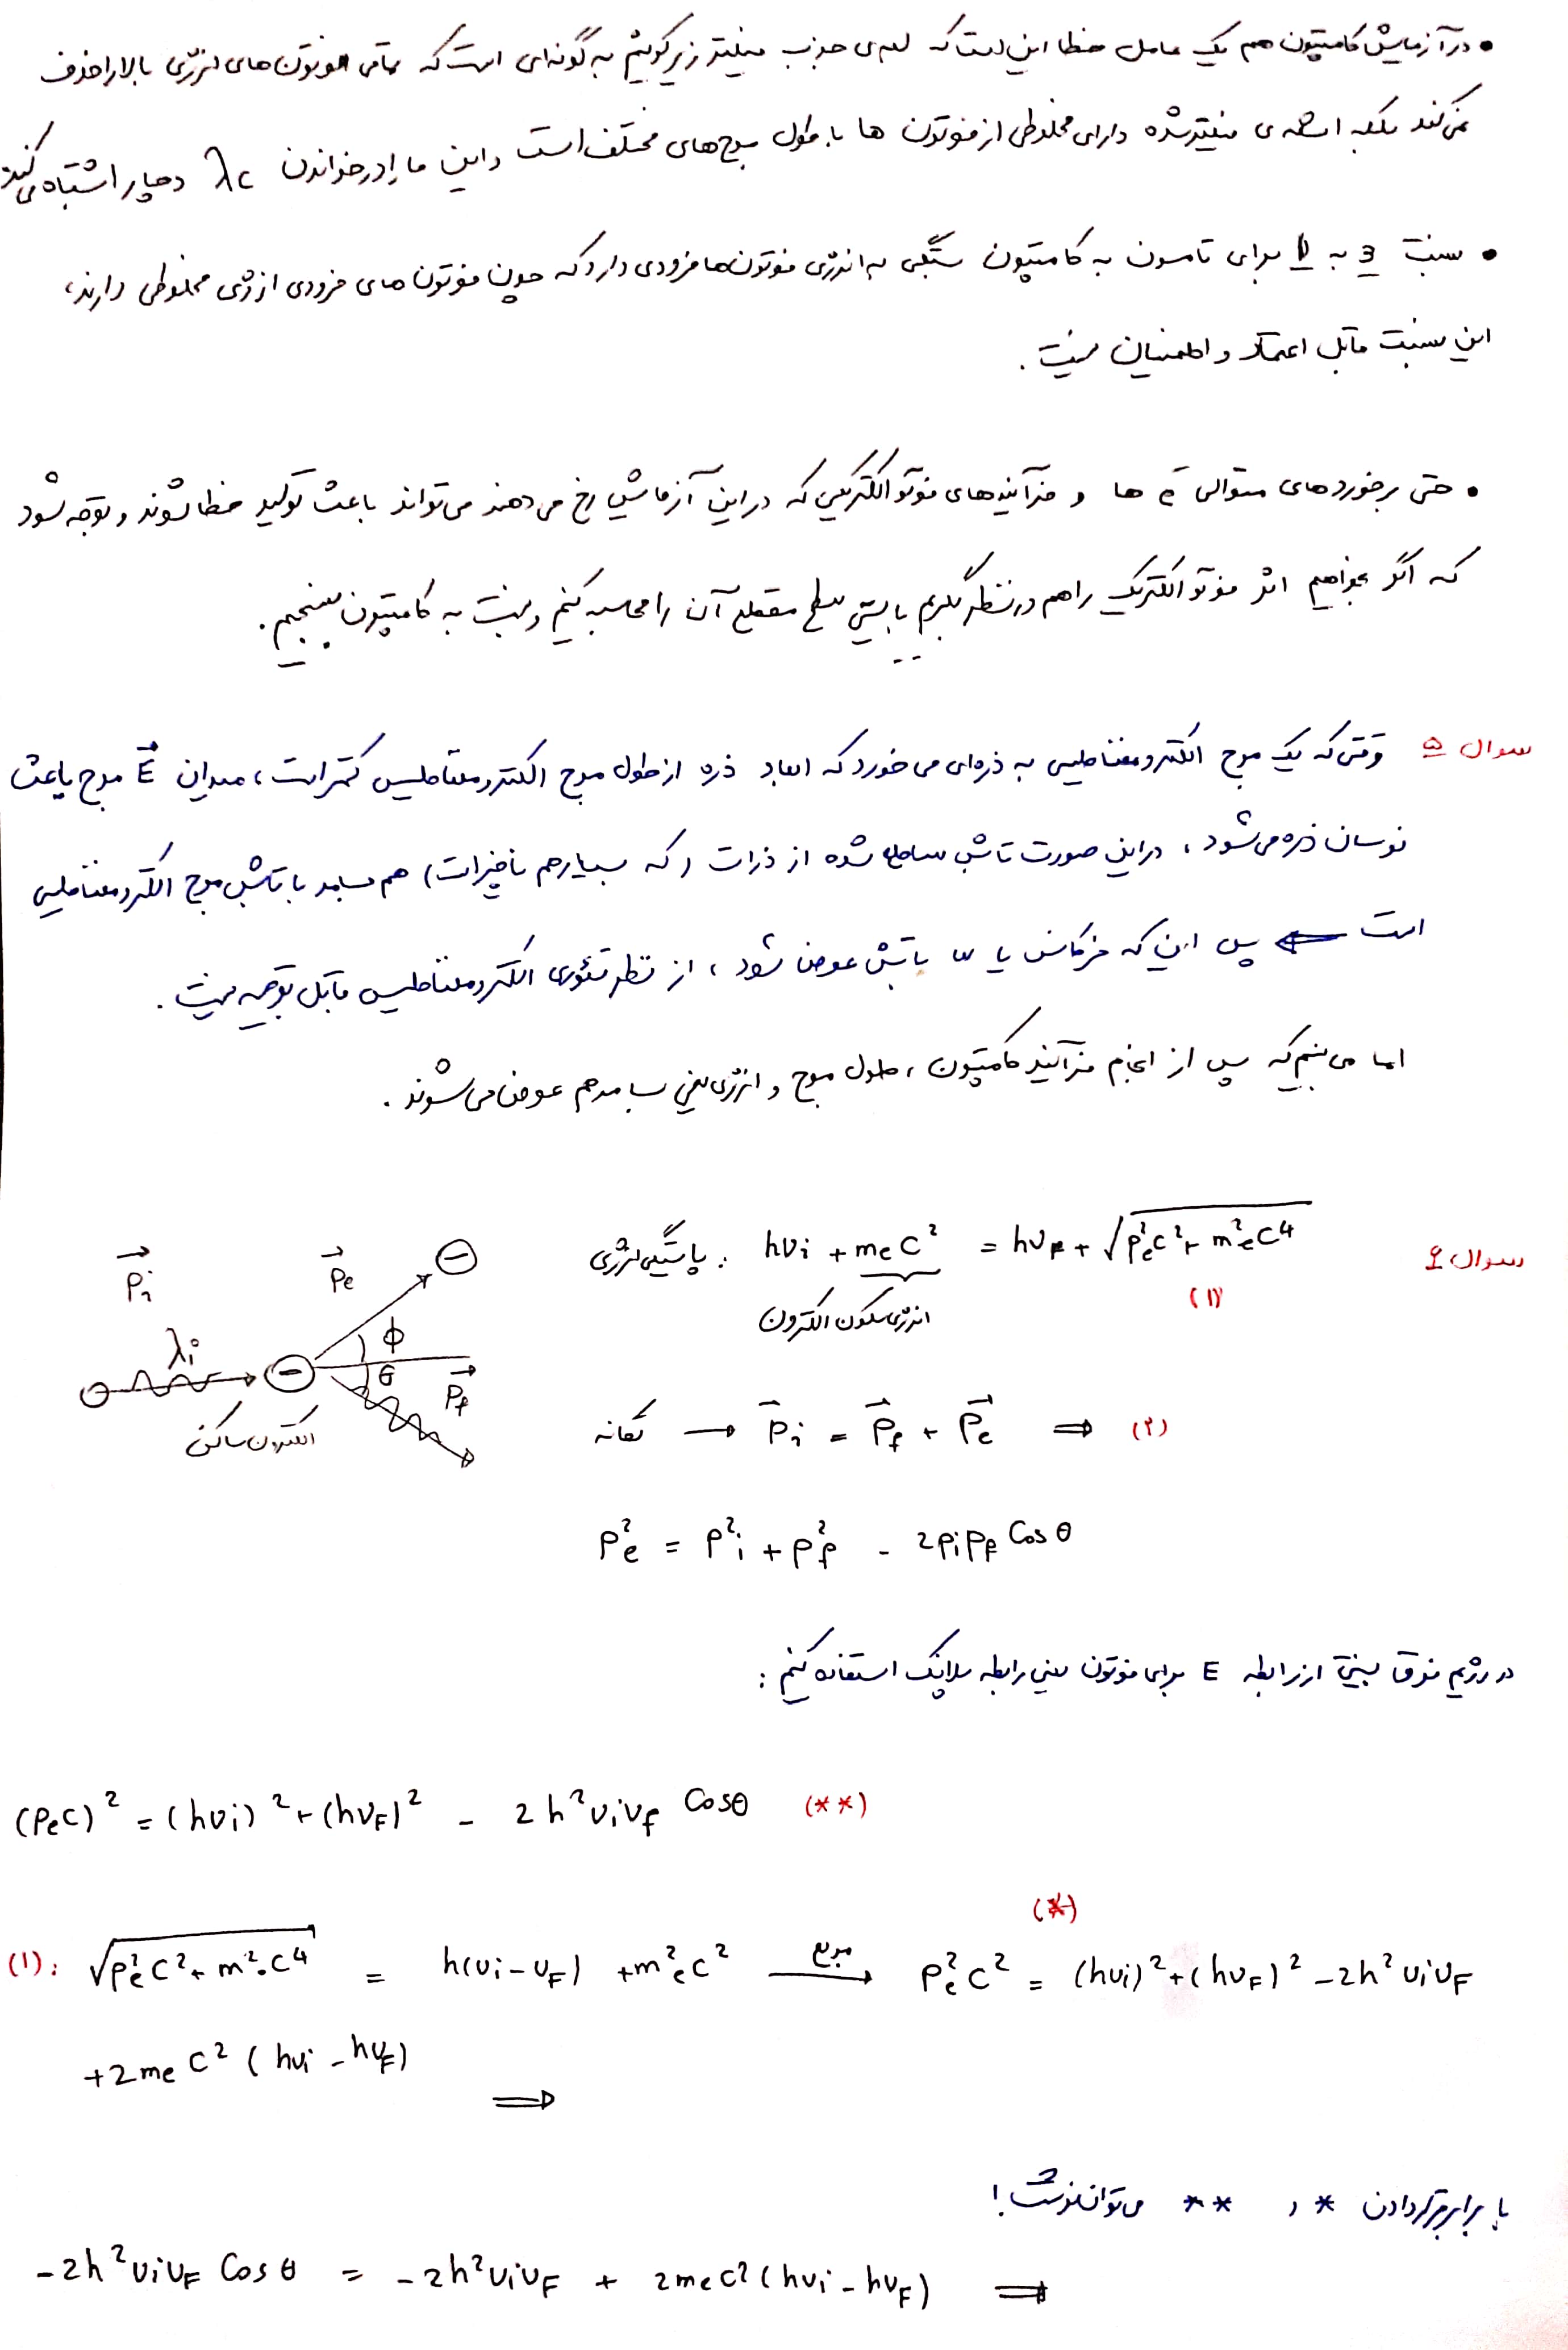 • در آزمایش کامپتون هم یک عامل خطا این است که لبه‌ی جذب فیلتر زیرکونیم به گونه‌ای است که تمامی فوتون‌های انرژی بالا را حذف
نمی‌کند بلکه اشعه‌ی فیلتر شده دارای مخلوطی از فوتون ها با طول موج‌های مختلف است و این ما را در خواندن λc دچار اشتباه می‌کند
• نسبت به برای تامسون به کامپتون بستگی به انرژی فوتون‌ها فرودی دارد که چون فوتون های فرودی انرژی مخلوطی دارند،
این نسبت قابل اعتماد و اطمینان نیست.
• حتی برخوردهای متوالی e⁻ ها و فرآیندهای فوتوالکتریکی که در این آزمایش رخ می‌دهند می‌تواند باعث تولید خطا شوند و توجه شود
که اگر بخواهیم اثر فوتوالکتریک را هم در نظر بگیریم بایستی سطح مقطع آن را محاسبه کنیم و نسبت به کامپتون بسنجیم.
سوال ۵ وقتی که یک موج الکترومغناطیسی به ذره‌ای می‌خورد که ابعاد ذره از طول موج الکترومغناطیس کمتر است، میدان E⃗ موج باعث
نوسان ذره می‌شود، در این صورت تابش ساطع شده از ذرات (که بسیار هم ناچیز است) هم بسامد با تابش موج الکترومغناطیسی
است ⇐ پس این که فرکانس یا ω تابش عوض شود، از نظر تئوری الکترومغناطیس قابل توجیه نیست.
اما می‌بینیم که پس از انجام فرآیند کامپتون، طول موج و انرژی یعنی بسامد هم عوض می‌شوند.
سوال ۶ پایستگی انرژی: hνi + me c² = hνF + √(pe²c² + me²c⁴)
(۱)
انرژی سکون الکترون
p⃗i
p⃗e
−
λi
−
ϕ
θ
p⃗f
الکترون ساکن
تکانه → p⃗i = p⃗f + p⃗e ⇒ (۲)
pe² = pi² + pf² - 2pipf Cosθ
در رژیم فوق نسبیتی از رابطه E برای فوتون یعنی رابطه پلانک استفاده کنیم:
(Pec)² = (hνi)² + (hνF)² - 2h²νiνf Cosθ (**)
(*)
(۱): √(pe²c² + m²·c⁴) = h(νi - νF) + me²c² مربع → pe²c² = (hνi)² + (hνF)² - 2h²νiνF
+2me c² (hνi - hνF)
⇒
با برابر قرار دادن * و ** می‌توان نوشت!
-2h²νiνF Cosθ = -2h²νiνF + 2mec² (hνi - hνF) ⇒